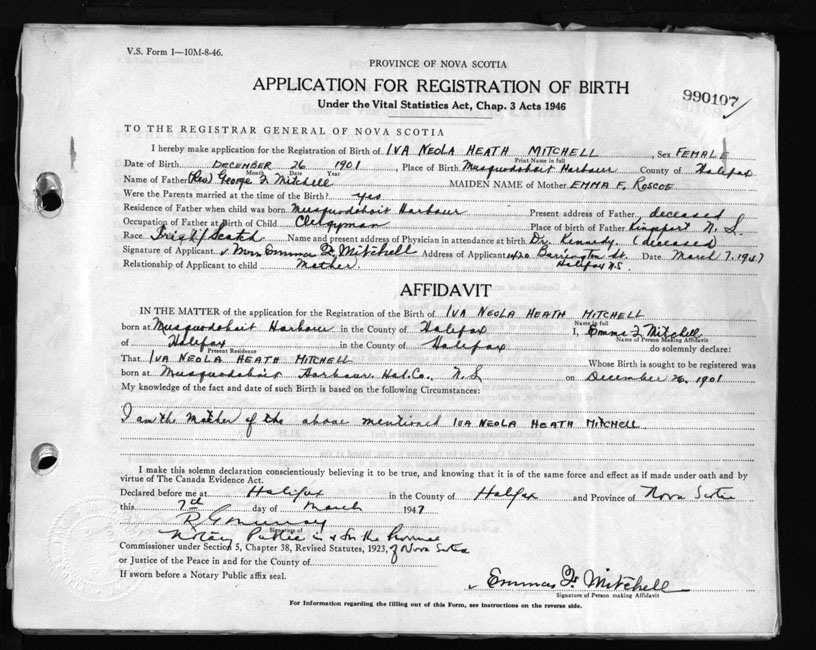 V.S. Form 1—10M-8-46.
PROVINCE OF NOVA SCOTIA
APPLICATION FOR REGISTRATION OF BIRTH
990107
Under the Vital Statistics Act, Chap. 3 Acts 1946
TO THE REGISTRAR GENERAL OF NOVA SCOTIA
I hereby make application for the Registration of Birth of IVA NEOLA HEATH MITCHELL, Sex FEMALE
Print Name in full
Date of Birth DECEMBER 26 1901, Place of Birth Musquodoboit Harbour County of Halifax
Month Date Year
Name of Father (Rev) George F. Mitchell MAIDEN NAME of Mother EMMA F. ROSCOE
Were the Parents married at the time of the Birth? yes
Residence of Father when child was born Musquodoboit Harbour Present address of Father deceased
Occupation of Father at Birth of Child Clergyman Place of birth of Father Kingsport N. S.
Race Irish/Scotch Name and present address of Physician in attendance at birth Dr. Kennedy. (deceased)
Signature of Applicant Mrs Emma F. Mitchell Address of Applicant Barrington St. Date March 7, 1947
Relationship of Applicant to child Mother. Halifax N.S.
AFFIDAVIT
IN THE MATTER of the application for the Registration of the Birth of IVA NEOLA HEATH MITCHELL
Name in full
born at Musquodoboit Harbour in the County of Halifax I, Emma F Mitchell
Name of Person Making Affidavit
of Halifax in the County of Halifax do solemnly declare:
Present Residence
That IVA NEOLA HEATH MITCHELL Whose Birth is sought to be registered was
born at Musquodoboit Harbour. Hal. Co. N.S on December 26, 1901
My knowledge of the fact and date of such Birth is based on the following Circumstances:
I am the Mother of the above mentioned IVA NEOLA HEATH MITCHELL.
I make this solemn declaration conscientiously believing it to be true, and knowing that it is of the same force and effect as if made under oath and by
virtue of The Canada Evidence Act.
Declared before me at Halifax in the County of Halifax and Province of Nova Scotia
this 7th day of March 1947
R G Murray
Signature of
Notary Public in & for the Province
Commissioner under Section 5, Chapter 38, Revised Statutes, 1923, of Nova Scotia
or Justice of the Peace in and for the County of
If sworn before a Notary Public affix seal.
Emma F. Mitchell
Signature of Person making Affidavit
For Information regarding the filling out of this Form, see instructions on the reverse side.